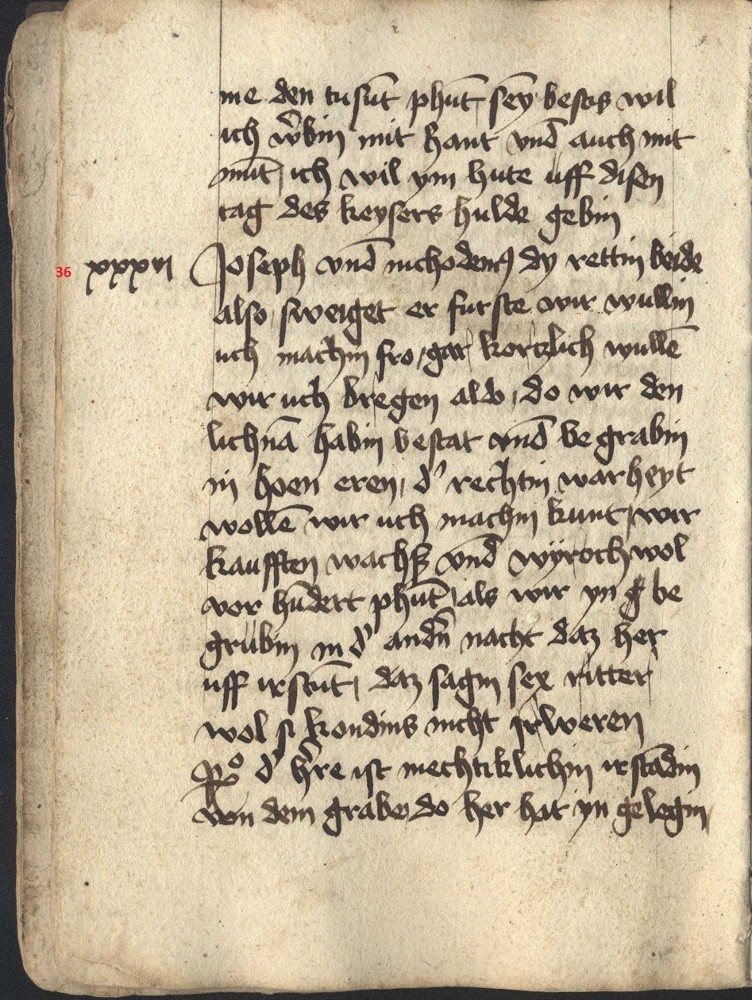 me den tusūt phūt sey besas wil
ich w'bin mit hant vnd auch mit
mūt ich wil ym hute uff disen
tag des keysers hulde gebin
36 xxxvi Joseph vnd nichodem9 dy rettin beide
also sweiget er furste wir wullin
uch machin fro gar kortzlich wullē
wir uch bregen aldo do wir den
lichnā habin bestat vnd be grabin
in hoen eren d' rechtin warheyt
wollē wir uch machin kunt wir
kaufften wachß vnd wÿroch wol
vor hūdert phūt als wir yn be
grubin in d' andn̄ nacht daz her
uff irstūt daz sagin sex ritter
wol si kondins nicht irweren
d' h're ist mechtiklichin irstādin
von dem grabe do her hat yn gelegin